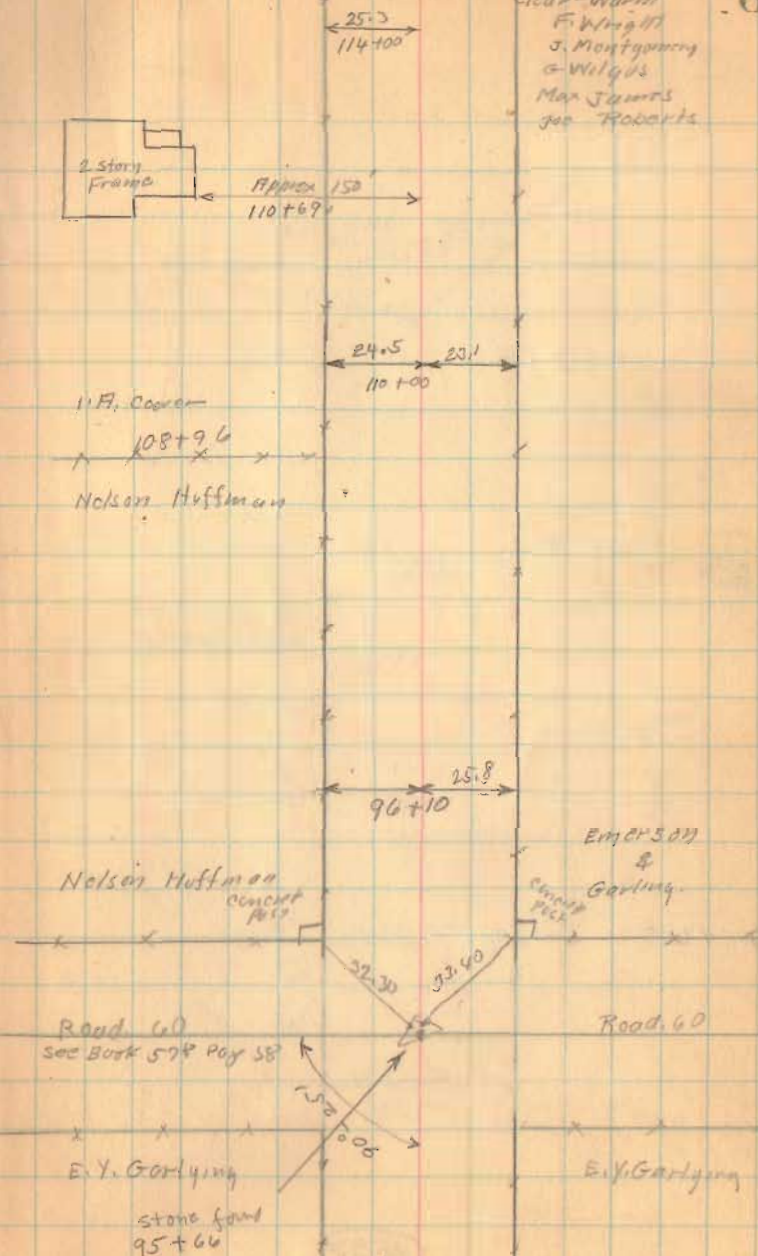 F. Wright
J. Montgomery
G Wilgus
Max James
Joe Roberts
25.3
114+00
2 Story
Frame
Approx 150'
110+69
24.5 23.1
110+00
108+96
Nelson Huffman
25.8
96+10
Emerson
&
Garling.
Nelson Huffman
concret
Post
concret
Post
32.30
33.40
Road. 60
See Book 578 Pag 58
Road. 60
90°
E. Y. Garlying
E. Y. Garlying
stone found
95+66